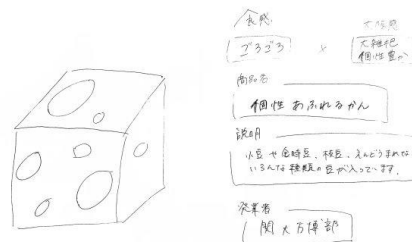 食感
ごろごろ
×
大雑把
個性豊か
商品名
個性あふれるかん
説明
小豆や金時豆、枝豆、えんどうまめな
いろんな種類の豆が入っています。
発案者
関大万博部